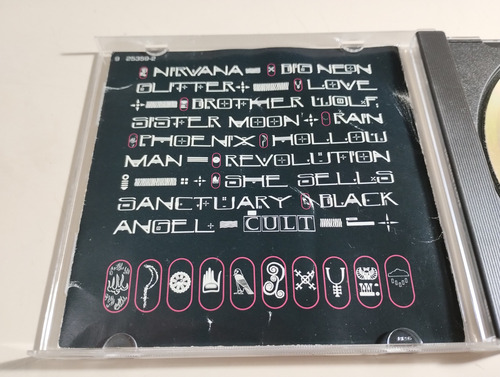 9 25359-2
NIRVANA BIG NEON
GLITTER LOVE
BROTHER WOLF,
SISTER MOON RAIN
PHOENIX HOLLOW
MAN REVOLUTION
SHE SELLS
SANCTUARY BLACK
ANGEL CULT